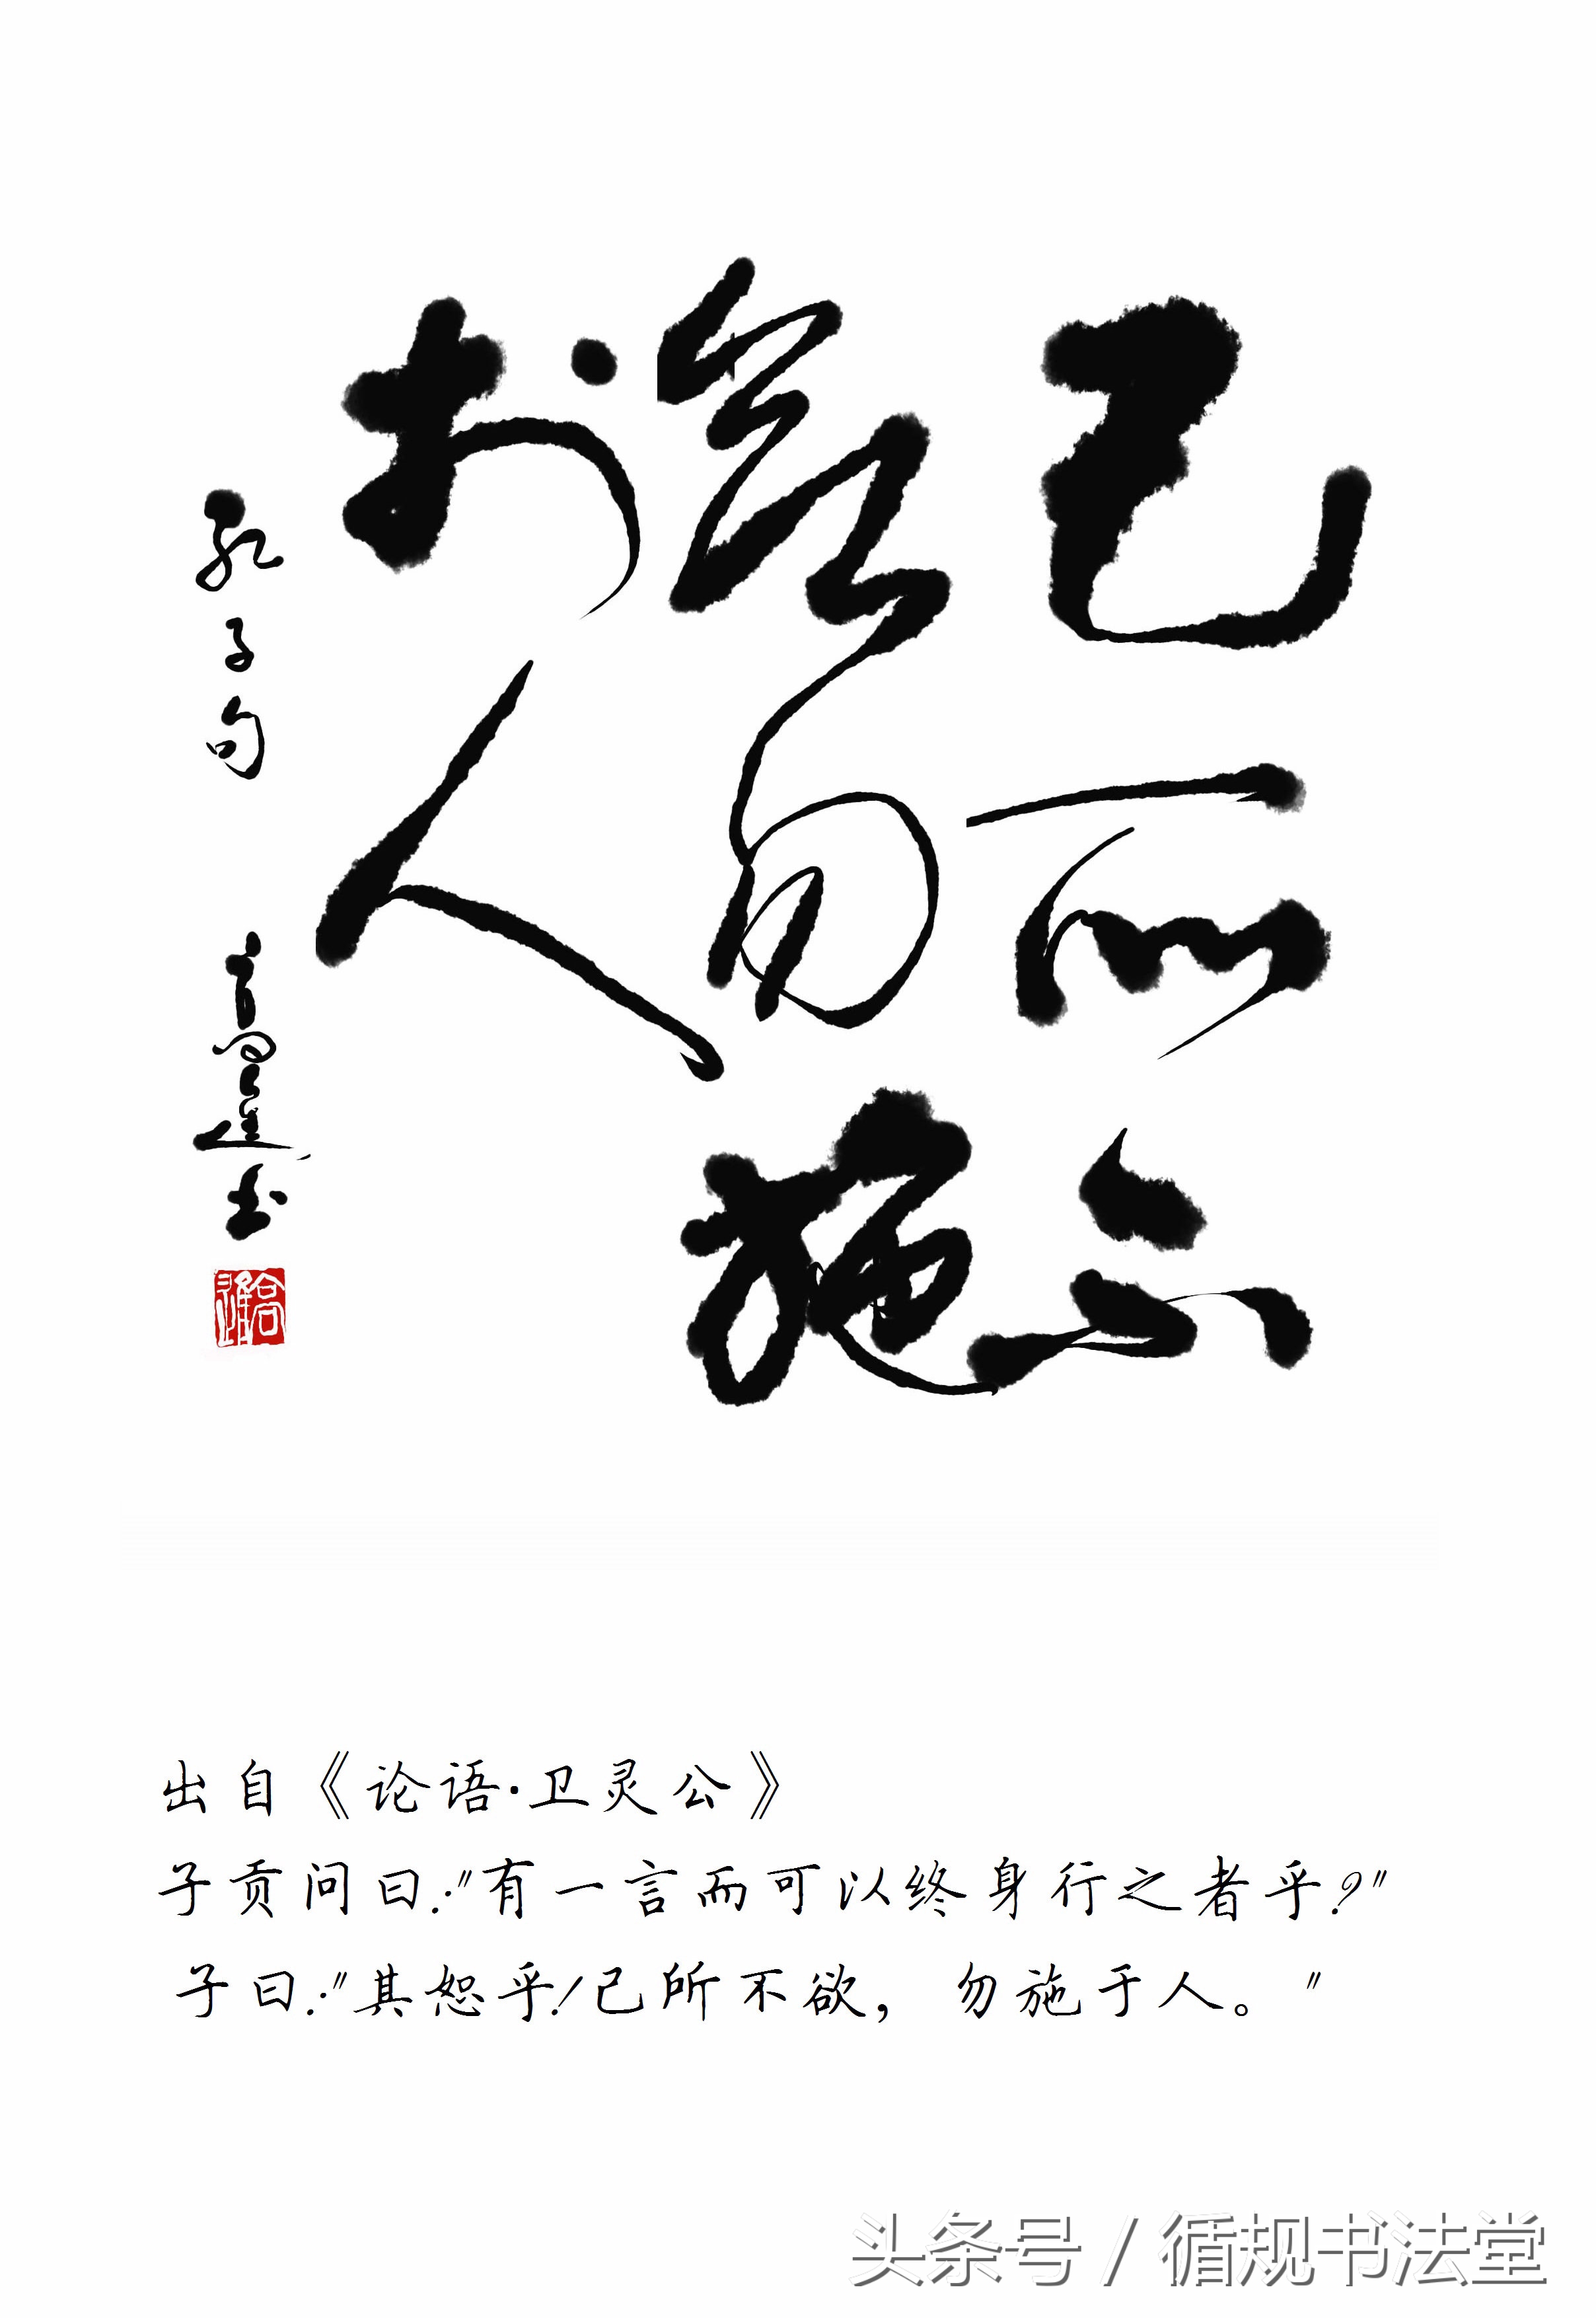 己所不
欲勿施
於人
孔子句
出自《论语·卫灵公》
子贡问曰："有一言而可以终身行之者乎？"
子曰："其恕乎！己所不欲，勿施于人。"
头条号 / 循规书法堂